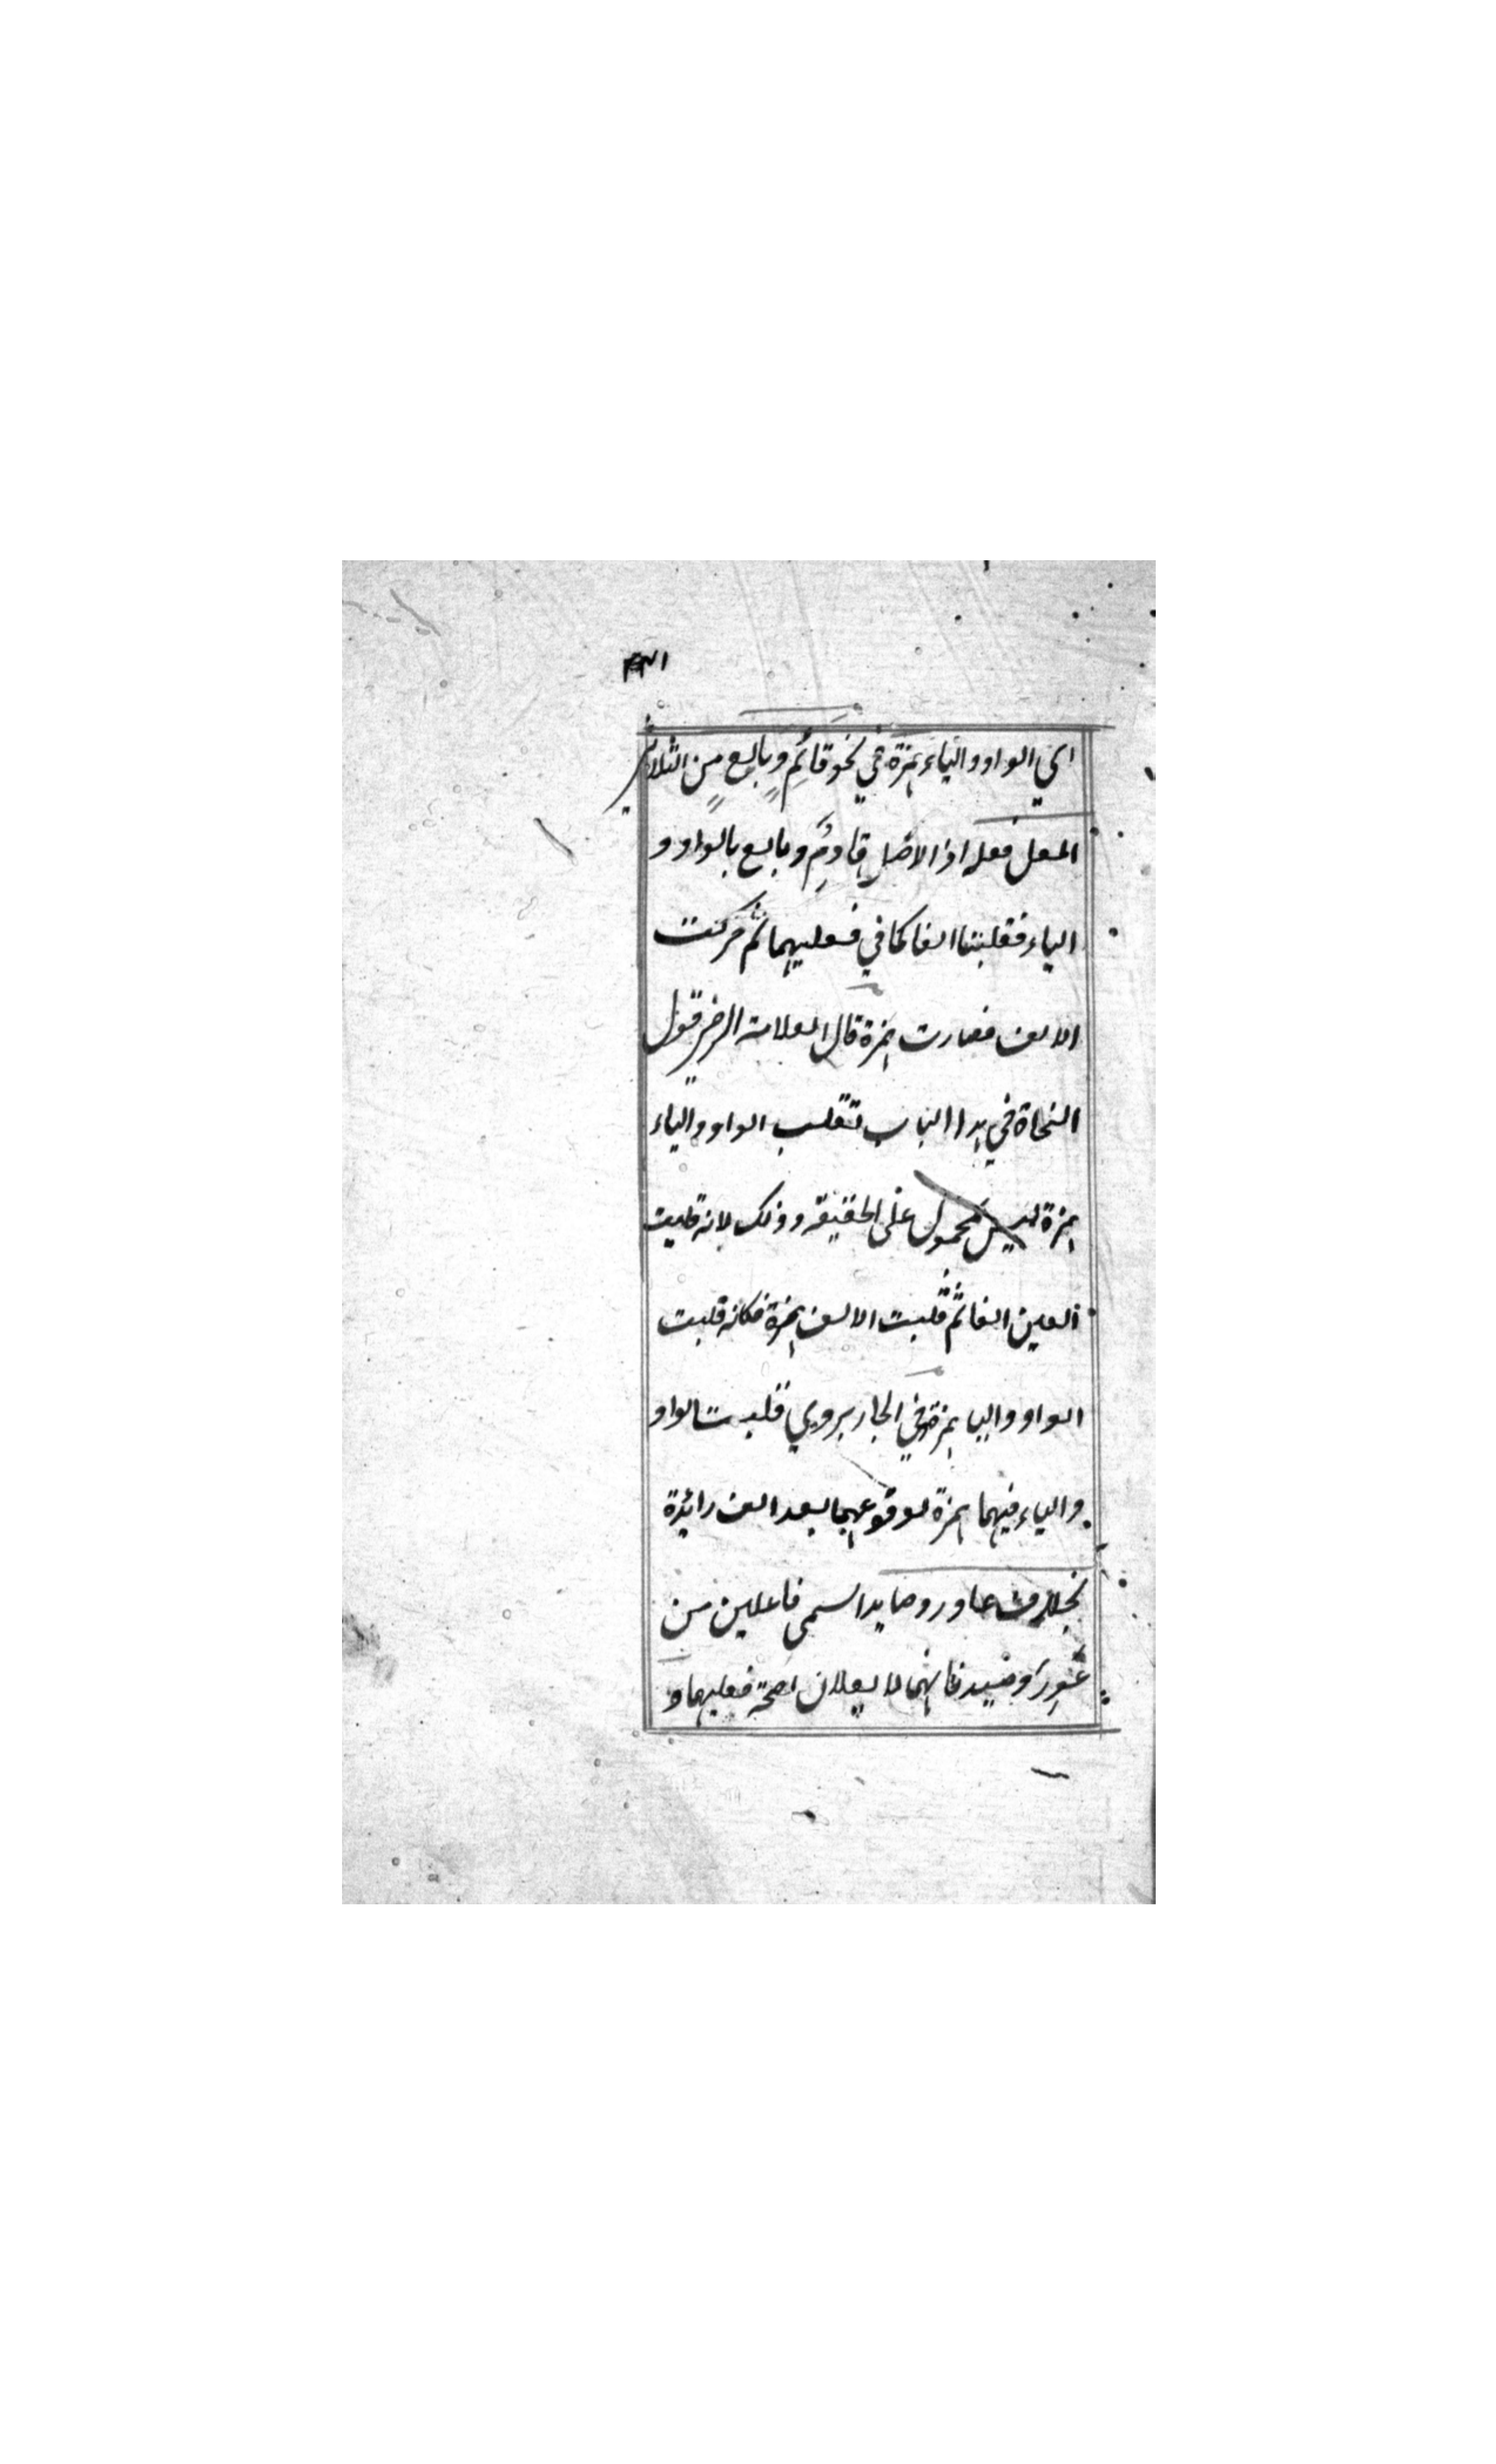 اي الواو والياء همزة في نحو قائم وبايع من الثلاثي
المعل فعله اذ الاصل قاوم وبايع بالواو و
الياء فقلبتا الفا كما في فعليهما ثم حركت
الالف فصارت همزة قال العلامة الرضي قول
النحاة في هذا الباب تقلب الواو والياء
همزة ليس محمول على الحقيقه وذلك لانه قلبت
العين الفا ثم قلبت الالف همزة فكانه قلبت
الواو واليا همزة وفي الجاربردي قلبت الواو
والياء فيهما همزة لوقوعهما بعد الف زائدة
بخلاف عاور وصايد اسمي فاعلين من
عور وصيد فانهما لا يعلان لصحة فعليهما و